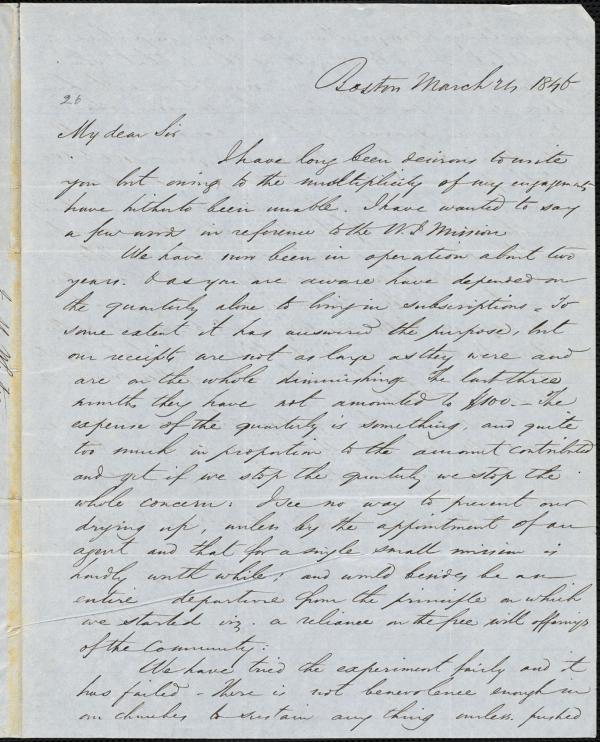 Boston March 26 1846
26
My dear Sir
I have long been desirous to write
you but owing to the multiplicity of my engagements
have hitherto been unable. I have wanted to say
a few words in reference to the W. I Mission
We have now been in operation about two
years. & as you are aware have depended on
the quarterly alone to bring in subscriptions - To
some extent it has answered the purpose, but
our receipts are not as large as they were and
are on the whole diminishing The last three
months they have not amounted to $100. - The
expense of the quarterly is something, and quite
too much in proportion to the amount contributed
and yet if we stop the quarterly we stop the
whole concern: I see no way to prevent our
drying up, unless by the appointment of an
agent and that for a single small mission is
hardly worth while; and would besides be an
entire departure from the principle on which
we started viz. a reliance on the free will offerings
of the Community:
We have tried the experiment fairly and it
has failed - There is not benevolence enough in
our churches to sustain any thing unless pushed